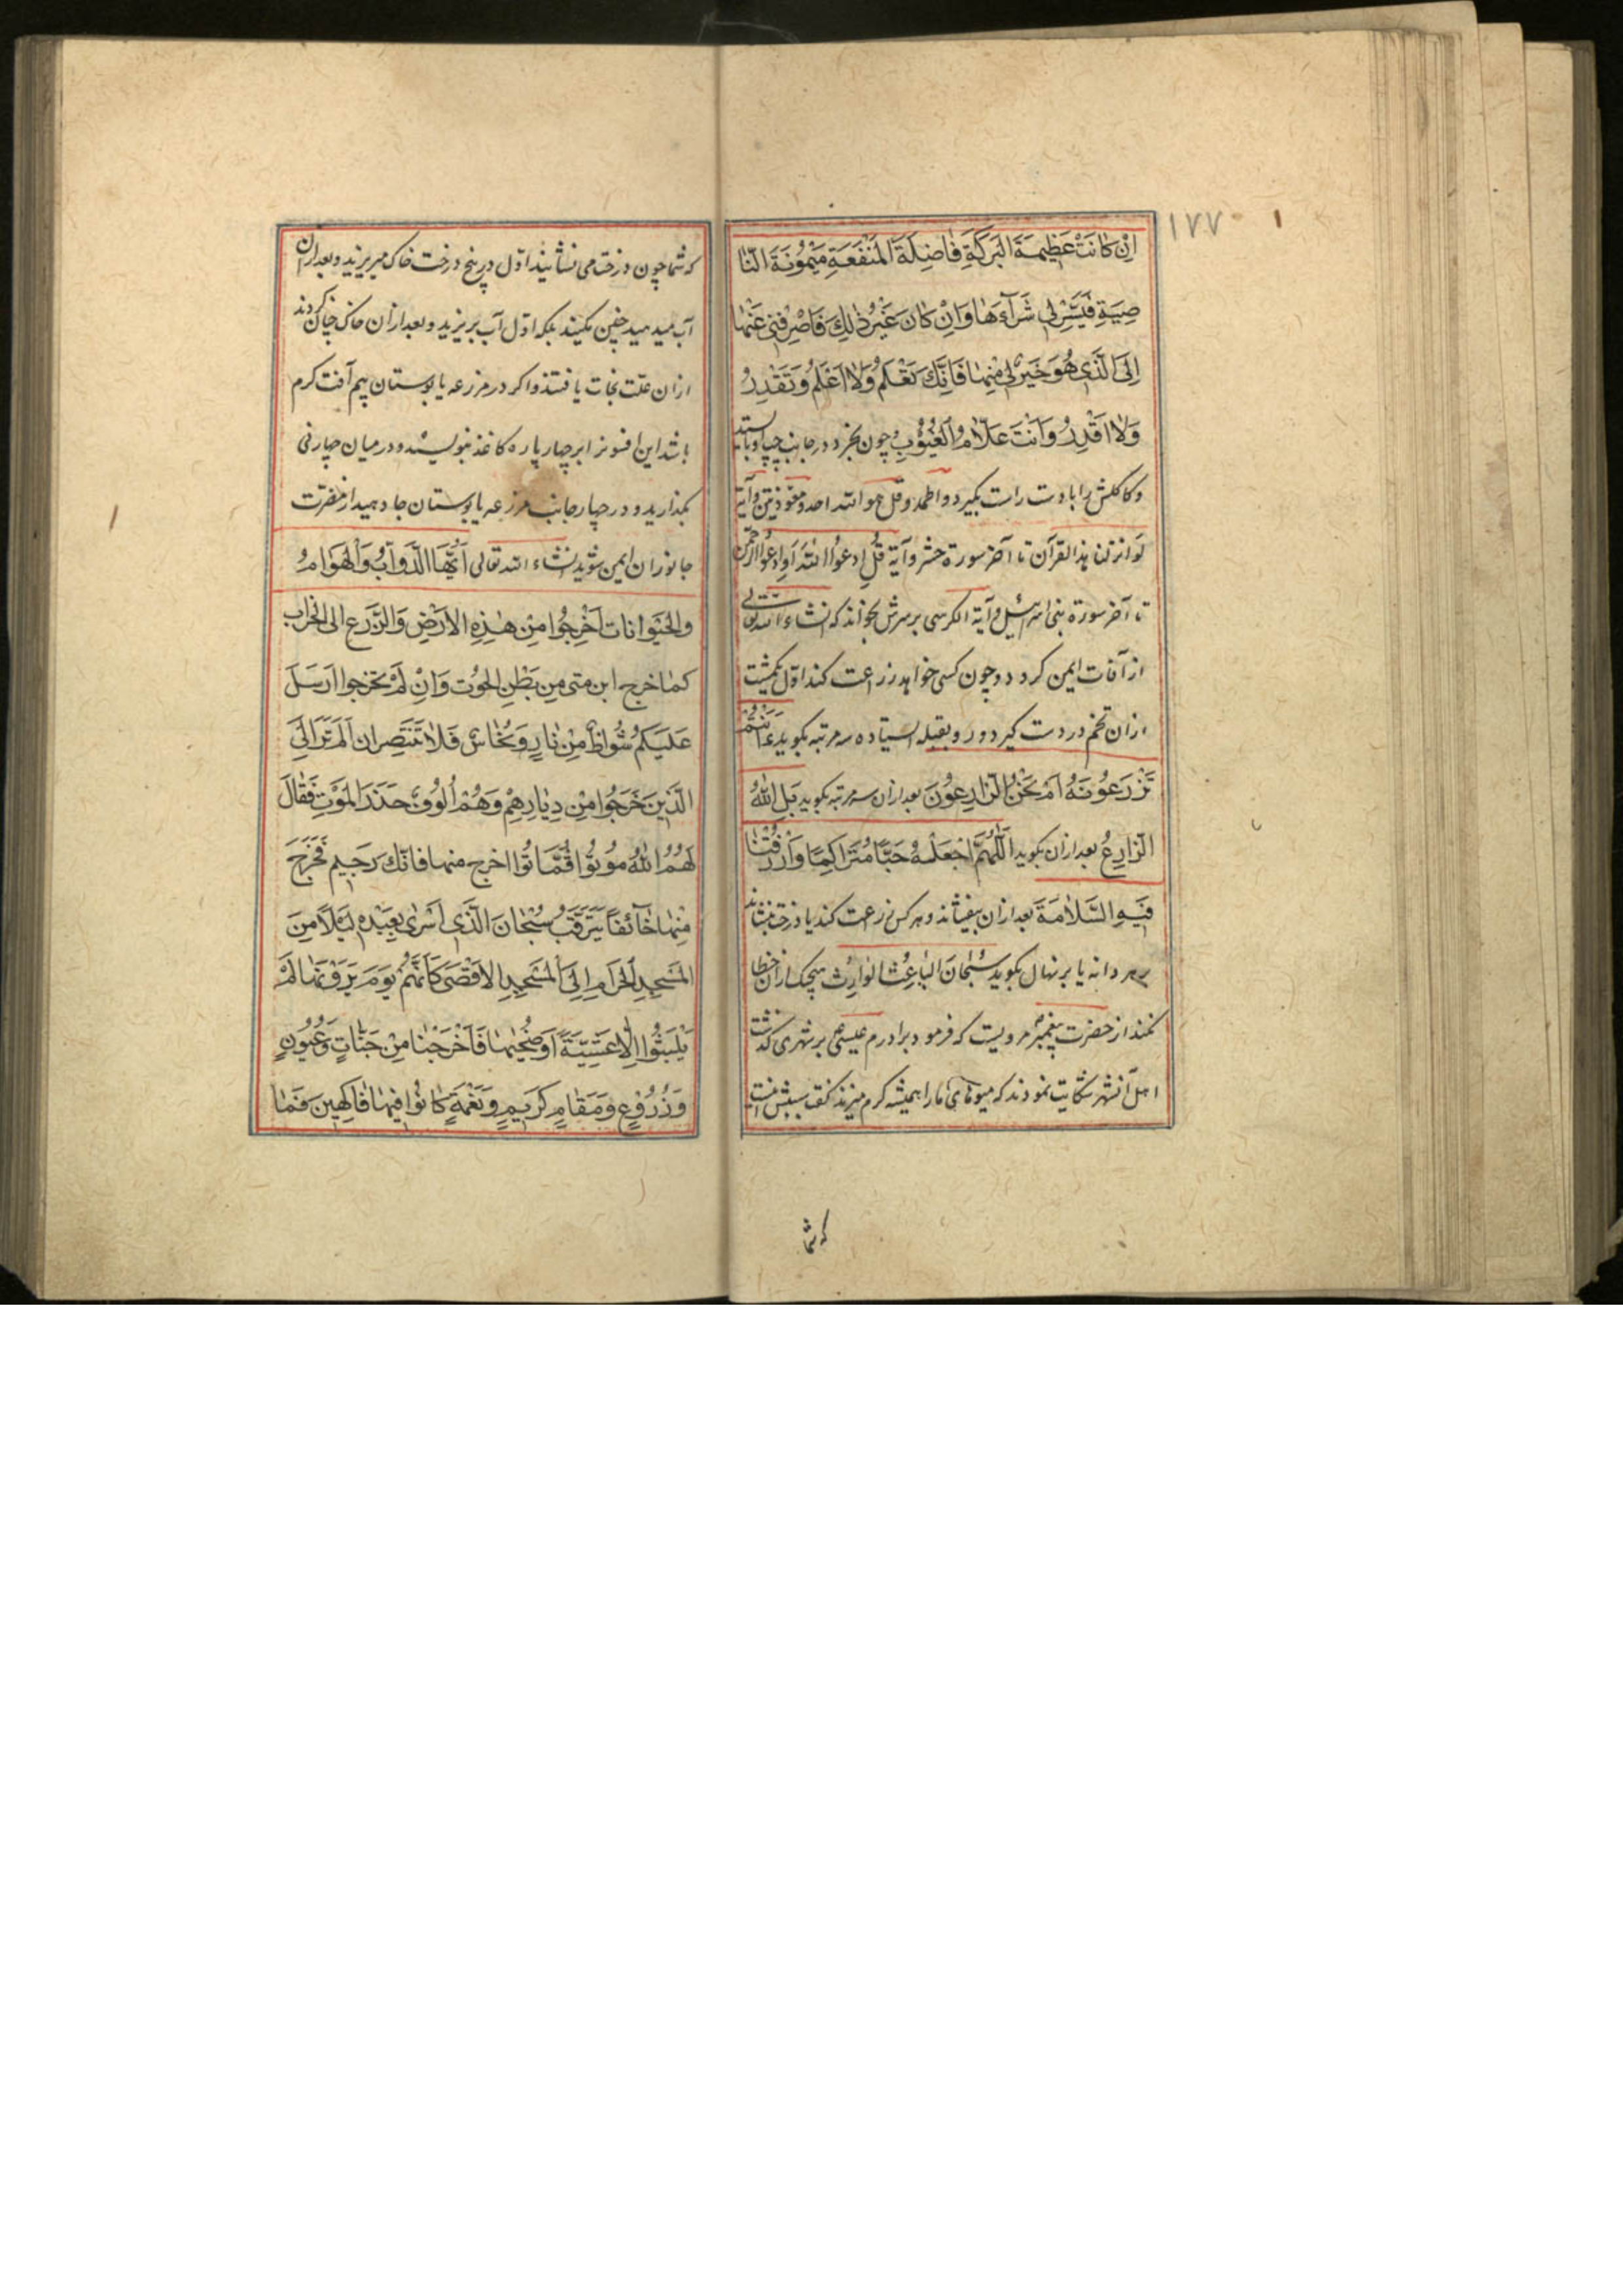 ۱۷۷
اِنْ كانَتْ عَظيمَةَ البَرَكَةِ فاضِلَةَ المَنْفَعَةِ مَيْمُونَةَ النّا
صِيَةِ فَيَسِّرْ لي شَرآءَها وَاِنْ كانَ غَيْرُ ذٰلِكَ فَاصْرِفْني عَنْها
اِلَى الَّذي هُوَ خَيْرٌ لي مِنْها فَاِنَّكَ تَعْلَمُ وَلا اَعْلَمُ وَتَقْدِرُ
وَلا اَقْدِرُ وَاَنْتَ عَلّامُ الغُيُوبِ چون بخرد در جانب چپ او بایستد
و کاکلش را با دست راست بگیرد و الحمد و قل هو الله احد و معوذتین و آیة
لو انزلنا هذا القرآن تا آخر سورة حشر و آیة قُلِ ادعُوا اللهَ اَوِ ادعُوا الرَّحمٰنَ
تا آخر سورة بنی اسرائیل و آیة الکرسی بر سرش بخواند که انشاء الله تعالی
از آفات ایمن کردد و چون کسی خواهد زراعت کند اوّل یکمشت
ازان تخم در دست کیرد و رو بقبله ایستاده سه مرتبه بکوید ءَاَنْتُمْ
تَزْرَعُونَهُ اَمْ نَحْنُ الزّارِعُونَ بعد ازان سه مرتبه بکوید بَلِ اللهُ
الزّارِعُ بعد ازان بکوید اَللّهُمَّ اجْعَلْهُ حَبًّا مُتَراكِمًا وَارْزُقْنا
فيهِ السَّلامَةَ بعد ازان بیفشاند و هر کس زرعت کند یا درخت بنشاند
بر هر دانه یا بر نهال بکوید سُبْحانَ الباعِثِ الوارِثِ هیچیک ازان خطا
نکند از حضرت پیغمبر مرویست که فرمود برادرم عیسی بر شهری کذشت
اهل آنشهر شکایت نمودند که میوهای ما را همیشه کرم میزند کفت سببش اینست
که شما
که شما چون درخت می نشانید اوّل در بیخ درخت خاک میریزید و بعد ازان
آب میدهید چنین نکنید بلکه اوّل آب بریزید و بعد ازان خاک چنان کردند
ازان علّت نجات یافتند و اکر در مزرعه یا بوستان بیم آفت کرم
باشد این افسونرا بر چهار پاره کاغذ بنویسند و در میان چهار نی
بکذارید و در چهار جانب مزرعه یا بوستان جا دهید از مضرّت
جانوران ایمن شوید انشاء الله تعالی اَيُّهَا الدَّوآبُ وَالهَوامُ
والحَيَوانات اُخْرُجُوا مِنْ هٰذِهِ الاَرْضِ وَالزَّرعِ الى الخراب
كما خرج ابن متى مِن بَطْنِ الحُوت وَاِنْ لَمْ تخرجوا اَرْسَلَ
عَلَيْكُمْ شُواظٌ مِنْ نارٍ وَنُحاسٌ فَلا تَنْتَصِران اَلَمْ تَرَ اِلَى
الَّذينَ خَرَجُوا مِنْ دِيارِهِمْ وَهُمْ اُلُوفٌ حَذَرَ المَوْتِ فَقالَ
لَهُمُ اللهُ مُوتُوا فَماتُوا اخرج منها فانّك رَجيم فَخَرَجَ
مِنْها خآئِفًا يَتَرَقَّبُ سُبْحانَ الَّذي اَسْرى بِعَبْدِه لَيْلًا مِنَ
المَسْجِدِ الحَرامِ اِلَى المَسْجِدِ الاَقْصى كَاَنَّهُمْ يَوْمَ يَرَوْنَها لَمْ
يَلْبَثُوا اِلّا عَشِيَّةً اَوْ ضُحيها فَاَخْرَجْنا مِنْ جَنّاتٍ وَعُيُونٍ
وَزُرُوعٍ وَمَقامٍ كَريمٍ وَنَعْمَةٍ كانُوا فيها فاكِهينَ فَما